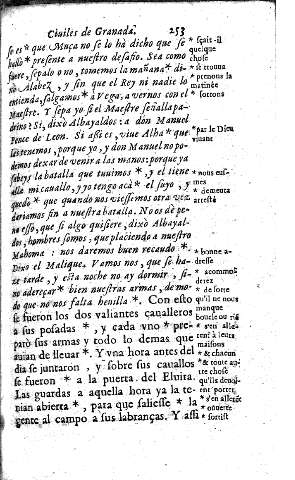 Ciuiles de Granada. 253
se es * que Muça no se lo hà dicho que se
hallò * presente a nuestro desafio. Sea como
fuere, sepalo o no, tomemos la mañana * di-
xo Alabez, y sin que el Rey ni nadie lo
entienda, salgamos * a Vega, a vernos con el
Maestre. Y sepa yo si el Maestre señalla pa-
drino: Si, dixo Albayaldos: a don Manuel
Ponce de Leon. Si assi es, viue Alha * que
los tenemos, porque yo, y don Manuel no po-
demos dexar de venir a las manos: porque ya
sabeys la batalla que tuuimos *, y el tiene
mi cauallo, y yo tengo acà * el suyo, y
quedò * que quando nos viessemos otra vez
dariamos fin a nuestra batalla. No os dè pe-
na esso, que si algo quisiere, dixo Albayal-
dos, hombres somos, que placiendo a nuestro
Mahoma: nos daremos buen recaudo *.
Dixo el Malique. Vamos nos, que se ha-
ze tarde, y esta noche no ay dormir, si-
no adereçar * bien nuestras armas, de mo-
do que no nos falta henilla *. Con esto
se fueron los dos valiantes caualleros
a sus posadas *, y cada vno * pre-
parò sus armas y todo lo demas que
auian de lleuar *. Y vna hora antes del
dia se juntaron, y sobre sus cauallos
se fueron * a la puerta del Eluira.
Las guardas a aquella hora ya la te-
nian abierta *, para que saliesse * la
gente al campo a sus labranças. Y assi
* sçait-il
quelque
chose
* se trouua
* prenons la
matinée
* sortons
* par le Dieu
viuant
* nous eus-
mes
* demeura
arresté
* bonne a-
dresse
* acommo-
der
* de sorte
qu'il ne nous
manque
boucle ou
* s'en alle-
rent à leurs
maisons
* & chacun
* & toute
tre chose
qu'ils deuoi-
ent porter,
* s'en allerét
* ouuerte
* sortist